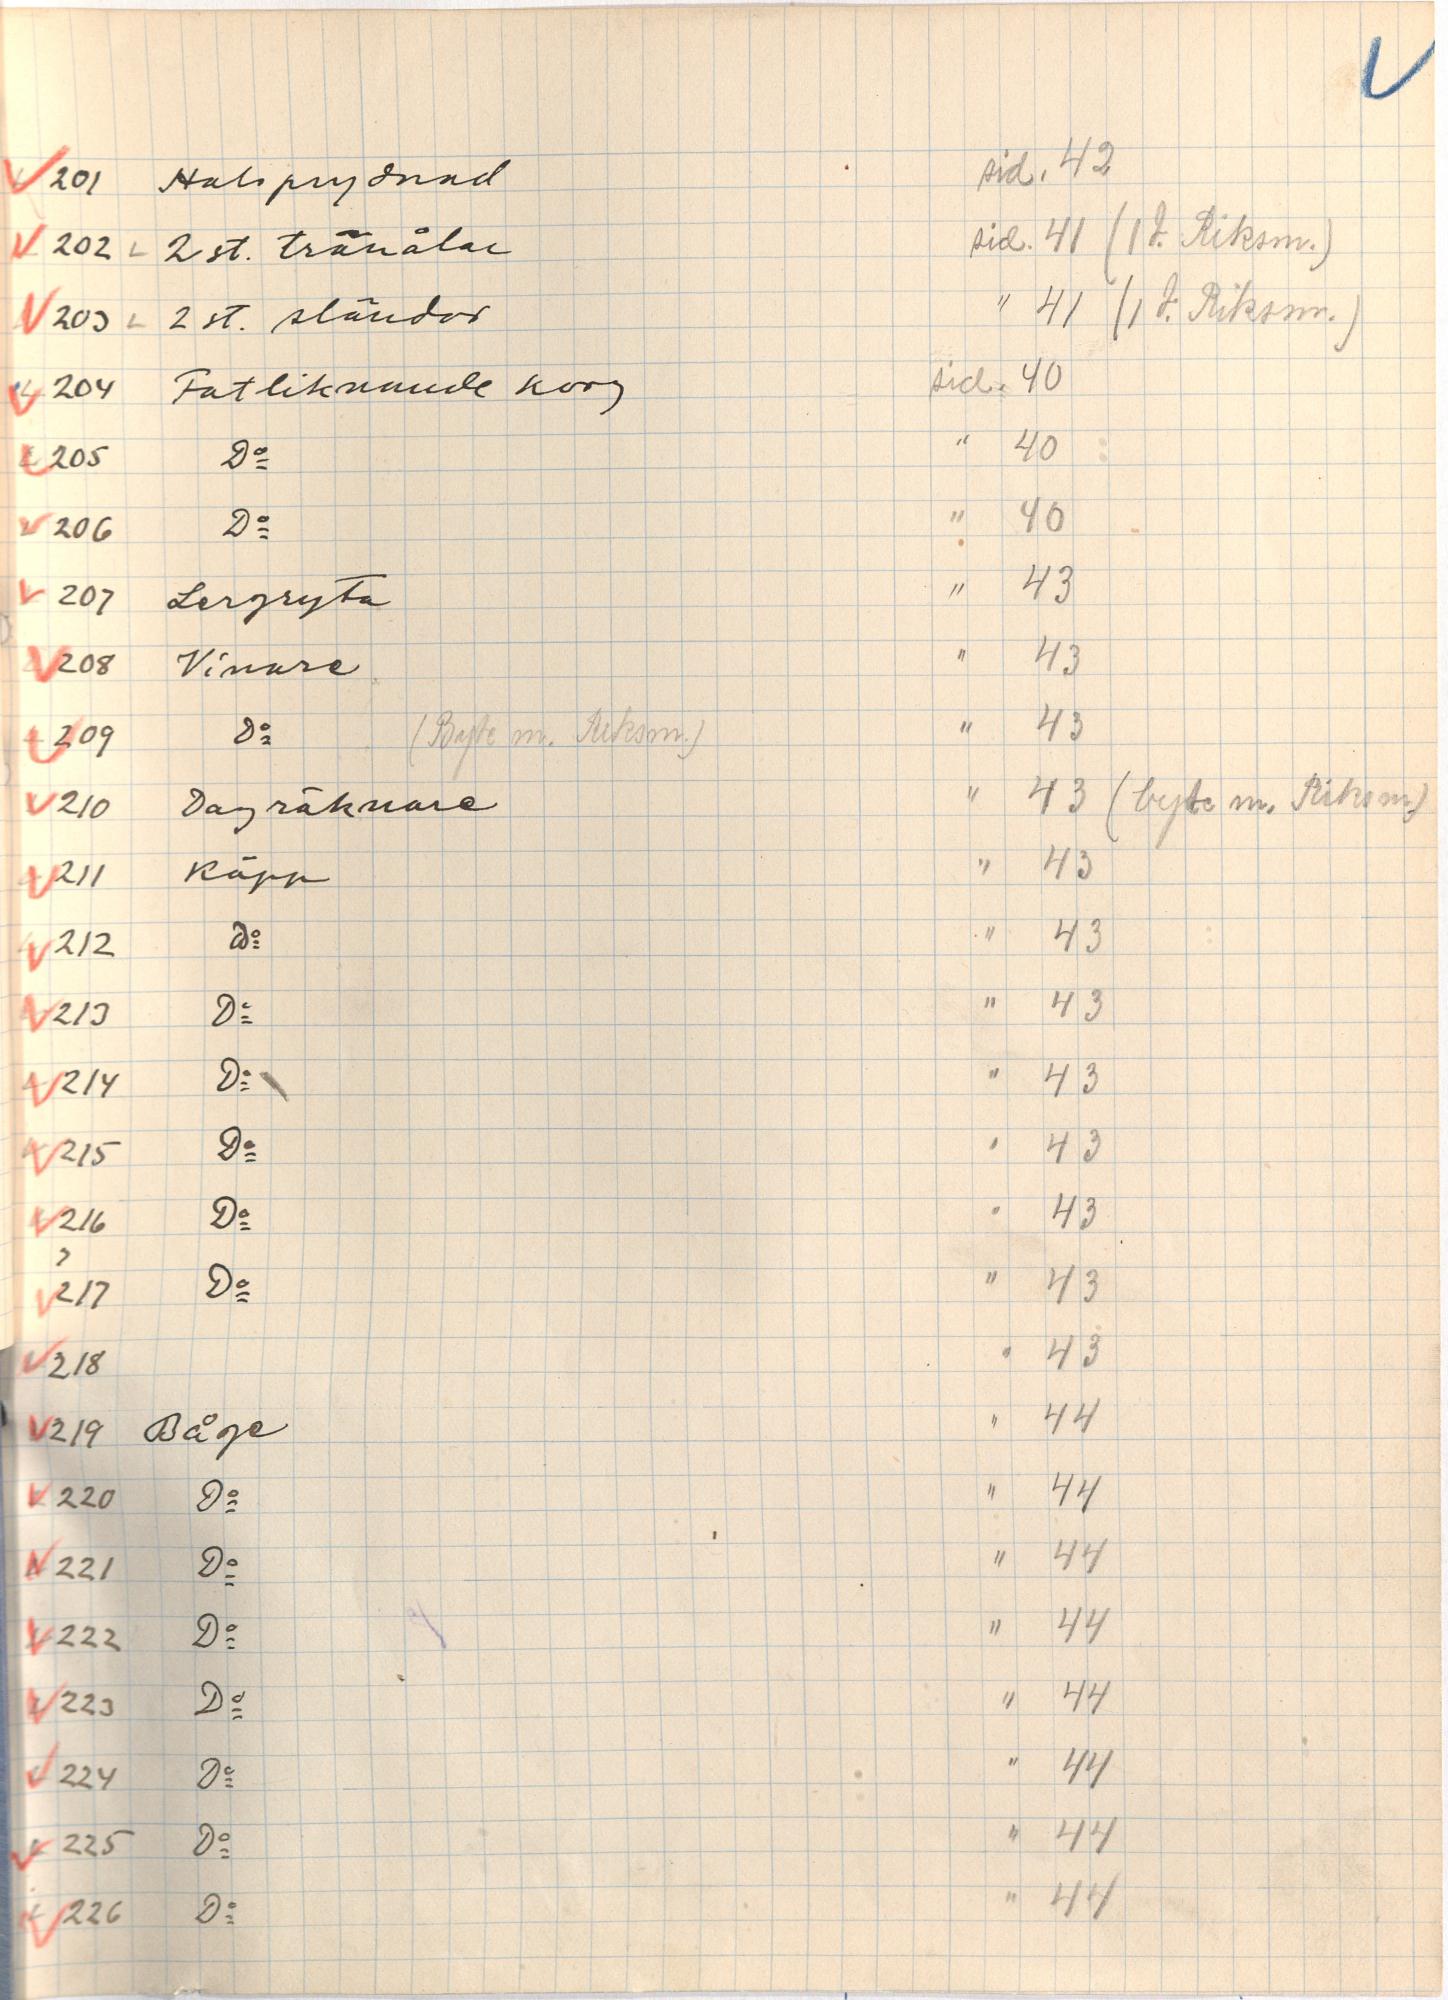 201 Halsprydnad sid. 42
202 2 st. tränålar sid. 41 (1 t. Riksm.)
203 2 st. sländor " 41 (1 t. Riksm.)
204 Fatliknande korg sid. 40
205 Do " 40
206 Do " 40
207 Lergryta " 43
208 Vinare " 43
209 Do (Byte m. Riksm.) " 43
210 Dagräknare " 43 (byte m. Riksm)
211 Käpp " 43
212 do " 43
213 Do " 43
214 Do " 43
215 Do " 43
216 Do " 43
?
217 Do " 43
218 " 43
219 Båge " 44
220 Do " 44
221 Do " 44
222 Do " 44
223 Do " 44
224 Do " 44
225 Do " 44
226 Do " 44